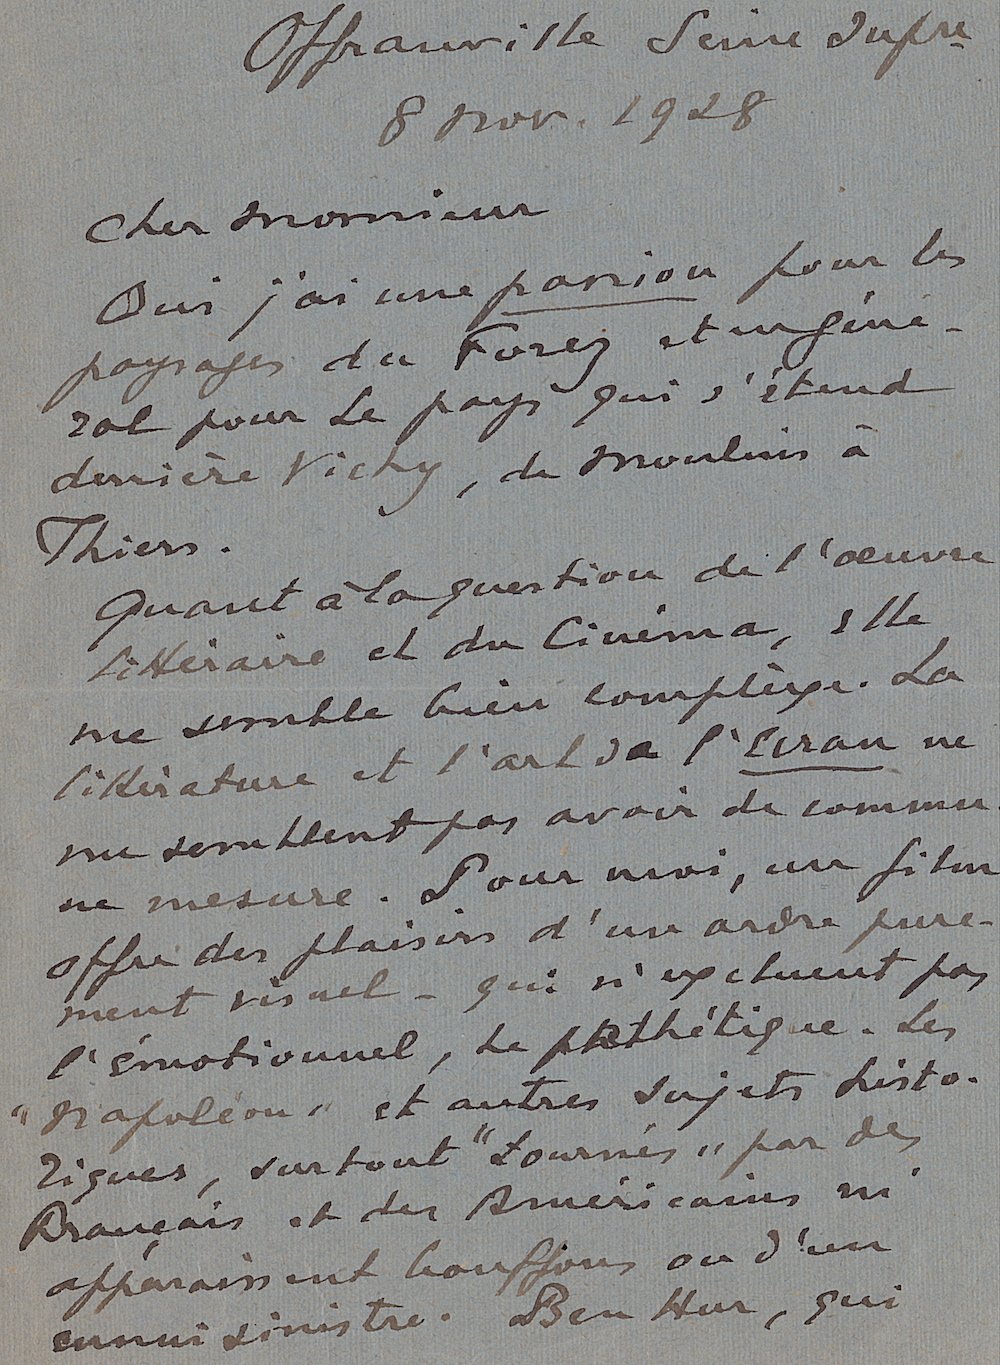 Offranville Seine Infre
8 Nov. 1928
Cher Monsieur
Oui j'ai une passion pour les
paysages du Forez et en géné-
ral pour le pays qui s'étend
derrière Vichy, de Moulins à
Thiers.
Quant à la question de l'œuvre
littéraire et du Cinéma, elle
me semble bien complexe. La
littérature et l'art de l'Ecran ne
me semblent pas avoir de commu-
ne mesure. Pour moi, un film
offre des plaisirs d'un ordre pure-
ment visuel - qui n'excluent pas
l'émotionnel, le pathétique. Les
"Napoléon" et autres sujets histo-
riques, surtout "tournés" par des
Français et des Américains m'
apparaissent bouffons ou d'un
ennui sinistre. Ben Hur, qui